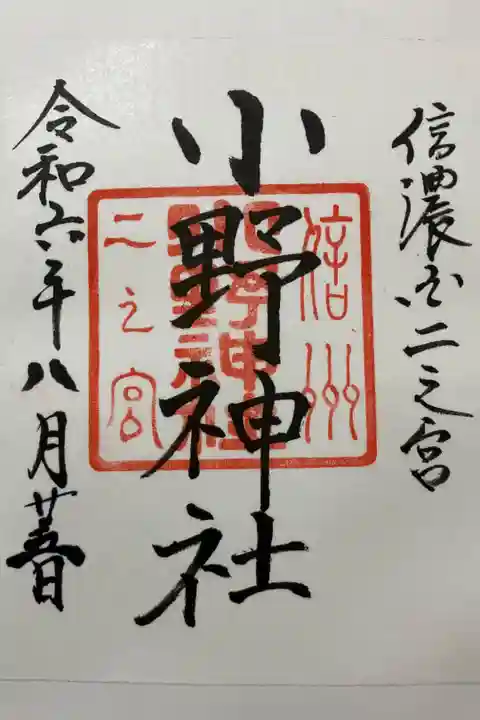 信濃国二之宮
小野神社
令和六年八月日
信州
小野神社
二之宮